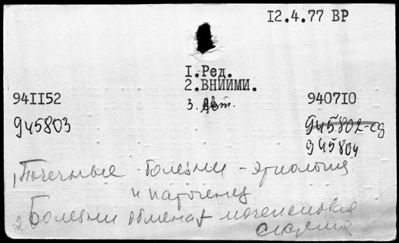 12.4.77 ВР
1. Ред.
2. ВНИИМИ.
941152
3. Авт.
940710
945803
945802-ед
945804
1, Почечные болезни - этиология
и патогенез
2, Болезни обмена